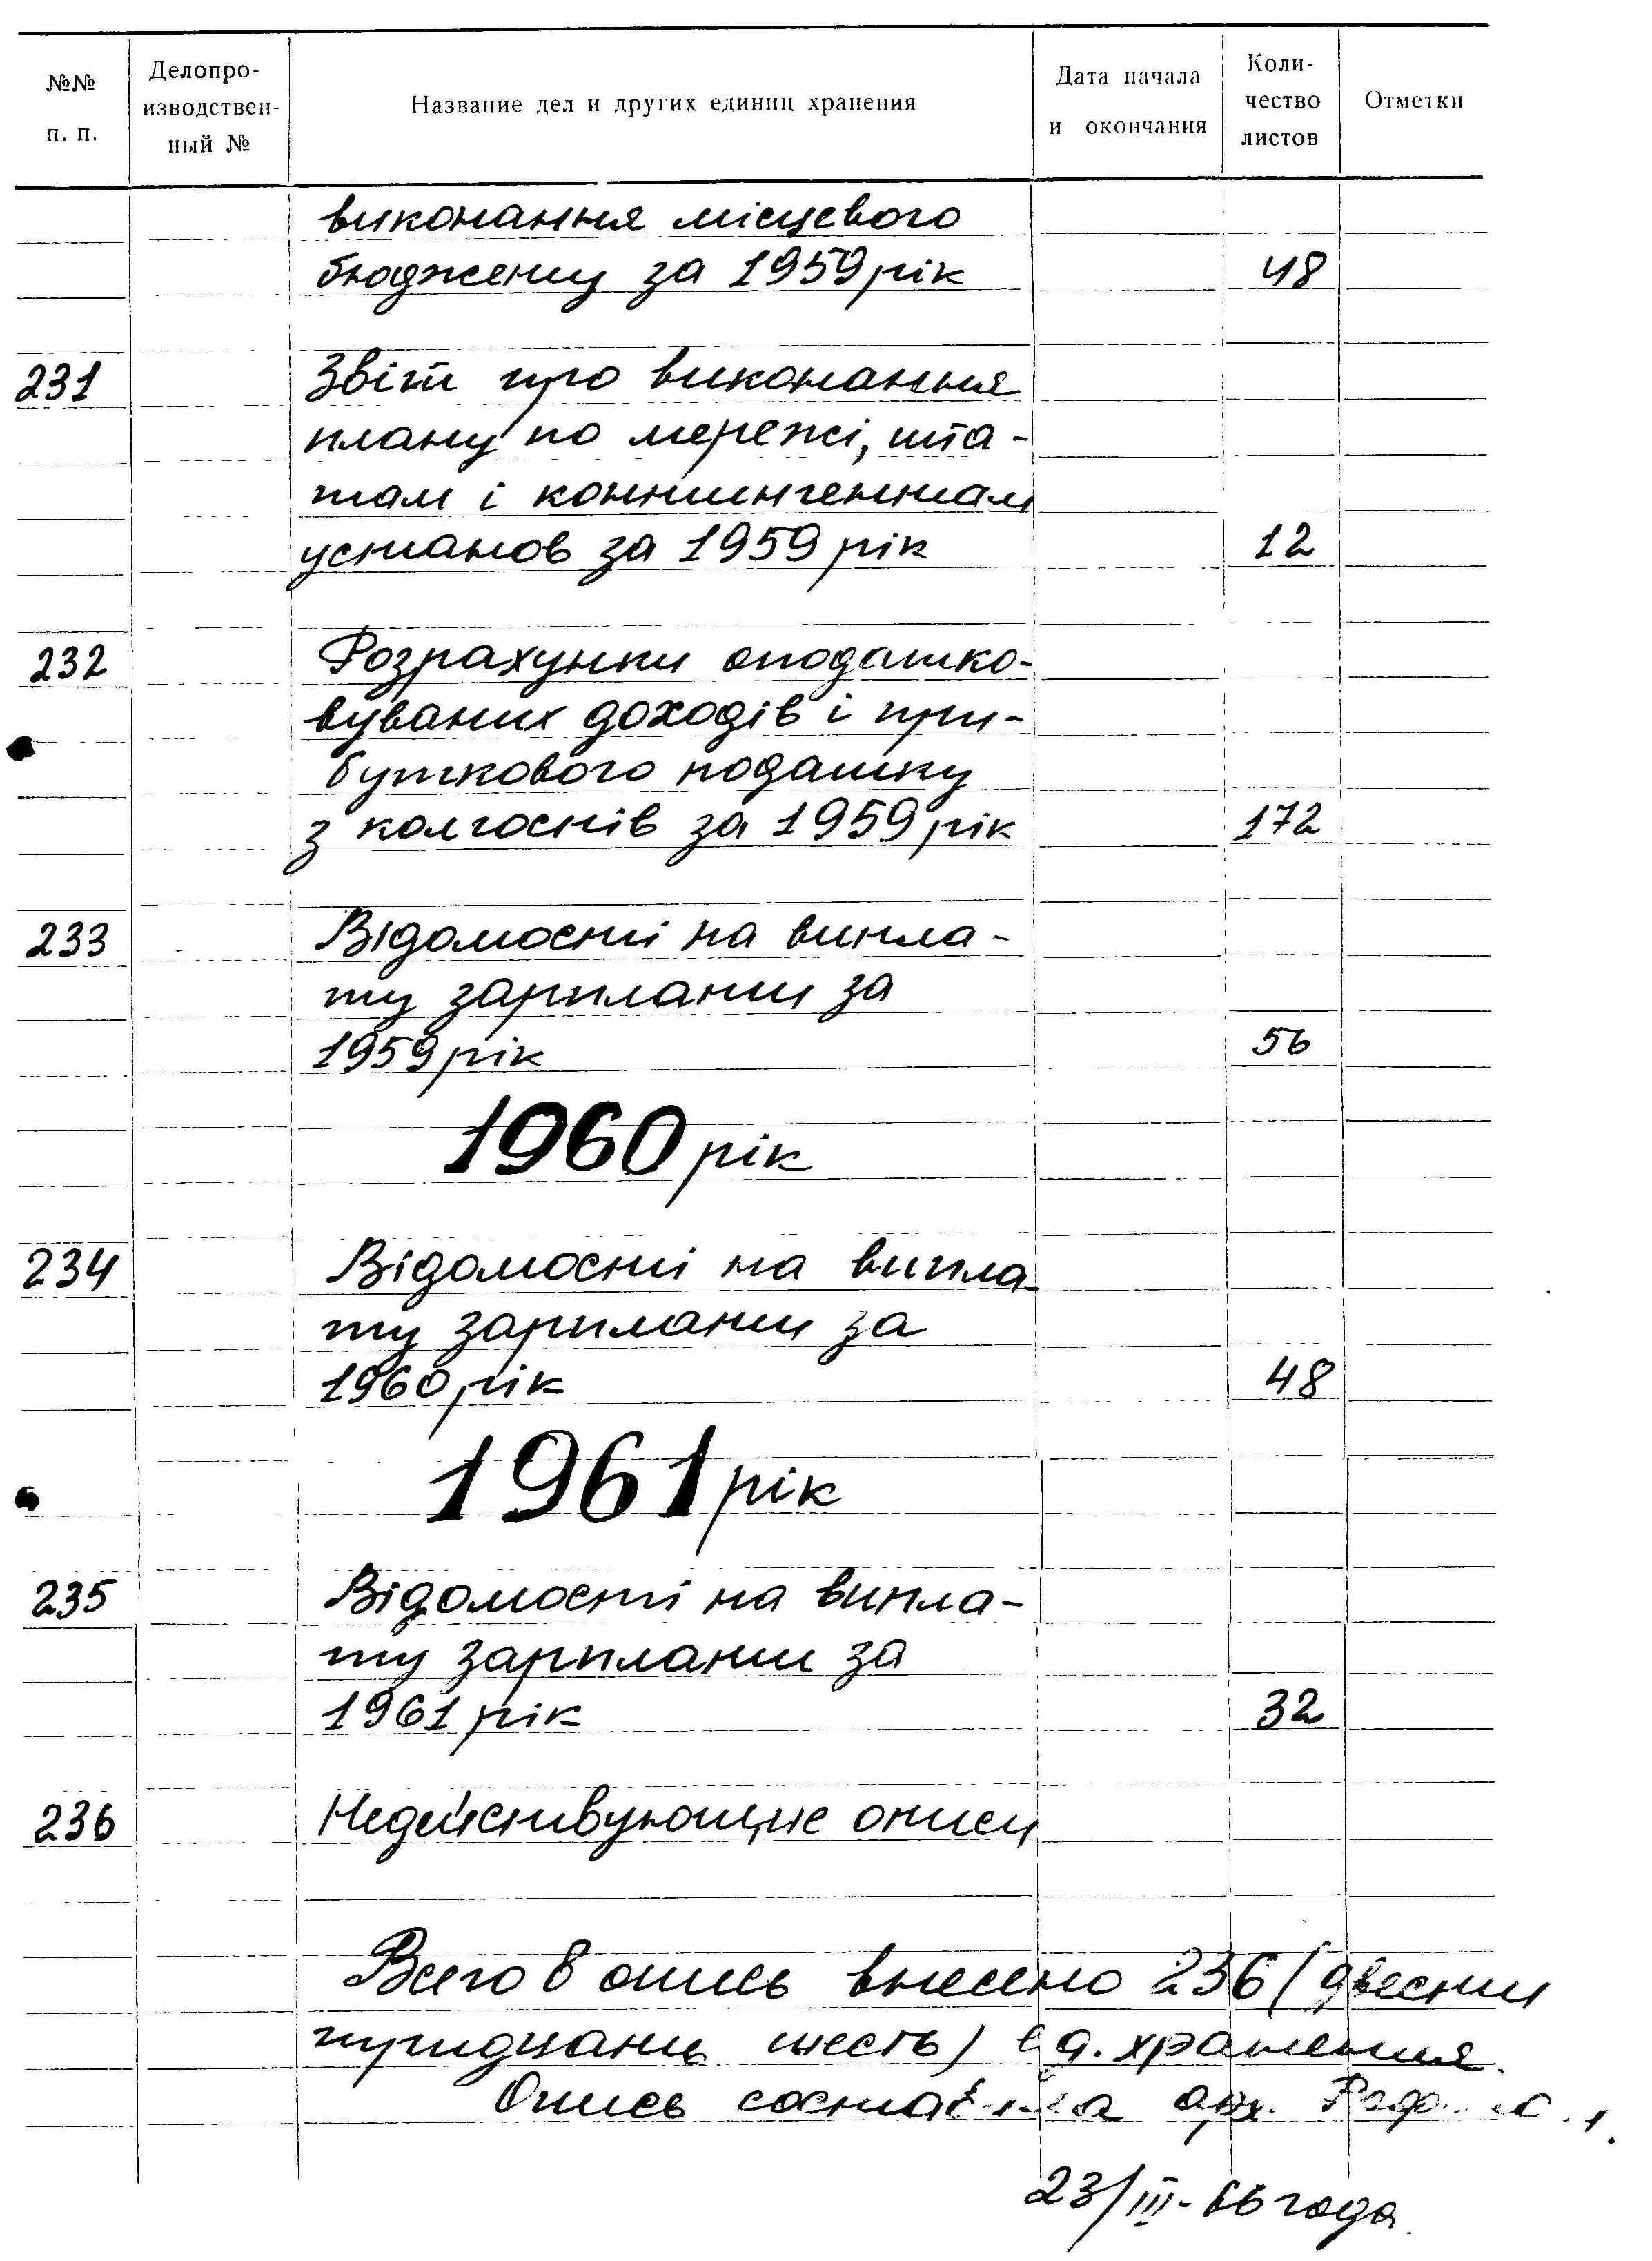 №№ п. п.
Делопро-
изводствен-
ный №
Название дел и других единиц хранения
Дата начала
и окончания
Коли-
чество
листов
Отметки
виконання місцевого
бюджету за 1959 рік 48
231 Звіт про виконання
плану по мережі, шта-
там і контингентам
установ за 1959 рік 12
232 Розрахунки оподатко-
вуваних доходів і при-
буткового податку
з колгоспів за 1959 рік 172
233 Відомості на випла-
ту зарплати за
1959 рік 56
1960 рік
234 Відомості на випла-
ту зарплати за
1960 рік 48
1961 рік
235 Відомості на випла-
ту зарплати за
1961 рік 32
236 Недействующие описи
Всего в опись внесено 236 (двести
тридцать шесть) ед. хранения.
Опись составлена арх.
23/III-66 года.